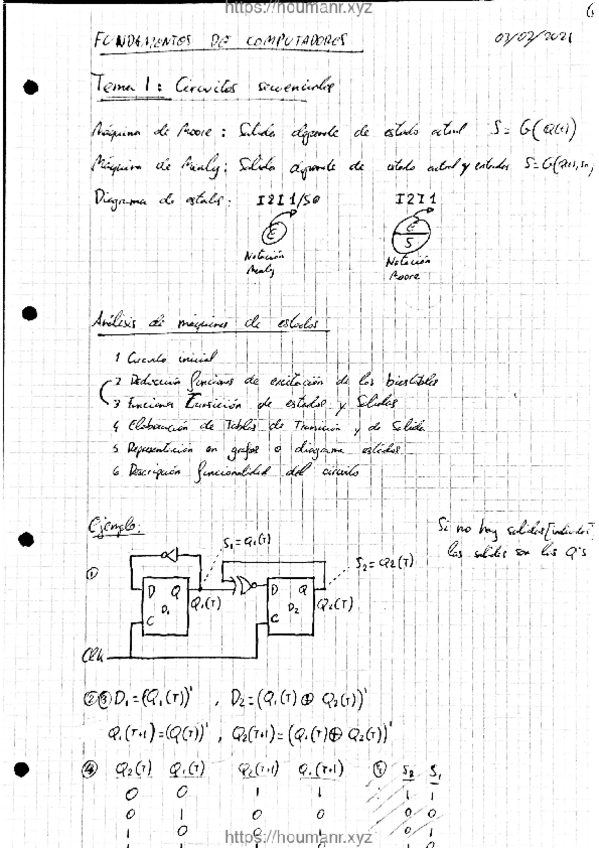 https://houmanr.xyz
FUNDAMENTOS DE COMPUTADORES 03/02/2021
Tema 1: Circuitos secuenciales
Máquina de Moore: Salida depende de estado actual S = G(Q(t))
Máquina de Mealy: Salida depende de estado actual y entradas S = G(
Diagrama de estados: I2I1/S0 I2I1
E E
S
Notación Notación
Mealy Moore
Análisis de máquinas de estados
1 Circuito inicial
2 Deducción funciones de excitación de los biestables
3 Funciones Transición de estados y Salidas
4 Elaboración de Tablas de Transición y de Salida
5 Representación en grafos o diagrama estados
6 Descripción funcionalidad del circuito
Ejemplo: Si no hay salidas
las salidas son las Q's
S1=Q1(T) S2=Q2(T)
①
D Q D Q
D1 Q1(T) D2 Q2(T)
C C
Clk
②③ D1=(Q1(T))' , D2=(Q1(T)⊕Q2(T))'
Q1(T+1)=(Q(T))' , Q2(T+1)=(Q1(T)⊕Q2(T))'
④ Q2(T) Q1(T) Q2(T+1) Q1(T+1) S2 S1
0 0 1 1 1 1
0 1 0 0 0 0
1 0 0 1 0
https://houmanr.xyz